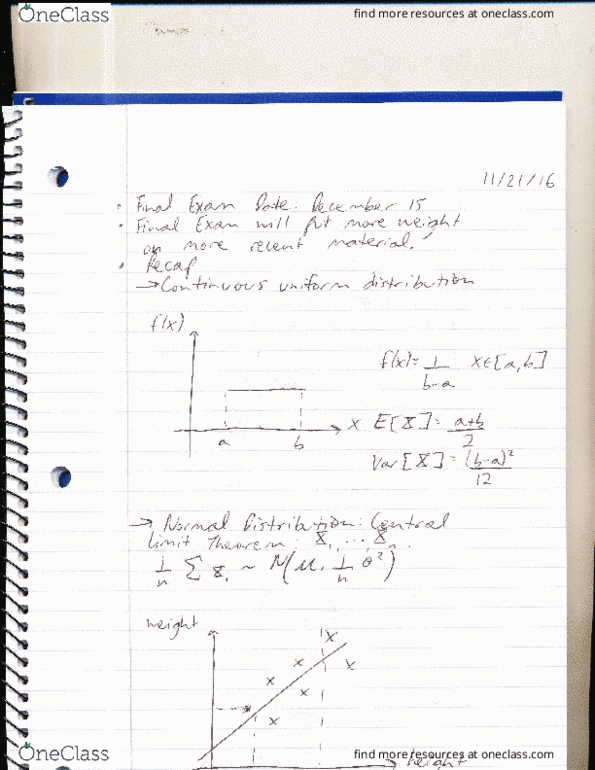 OneClass
find more resources at oneclass.com
11/21/16
• Final Exam Date: December 15
• Final Exam will put more weight
on more recent material.
• Recap
→ Continuous uniform distribution
f(x)
f(x) = 1/(b-a) x∈[a,b]
a b x
E[X] = (a+b)/2
Var[X] = (b-a)²/12
→ Normal Distribution: Central
Limit Theorem: X₁, ..., Xₙ.
1/n ∑ Xᵢ ~ N(μ, 1/n σ²)
weight
height
OneClass
find more resources at oneclass.com